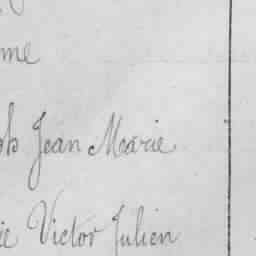 me
Jean Marie
Victor Julien